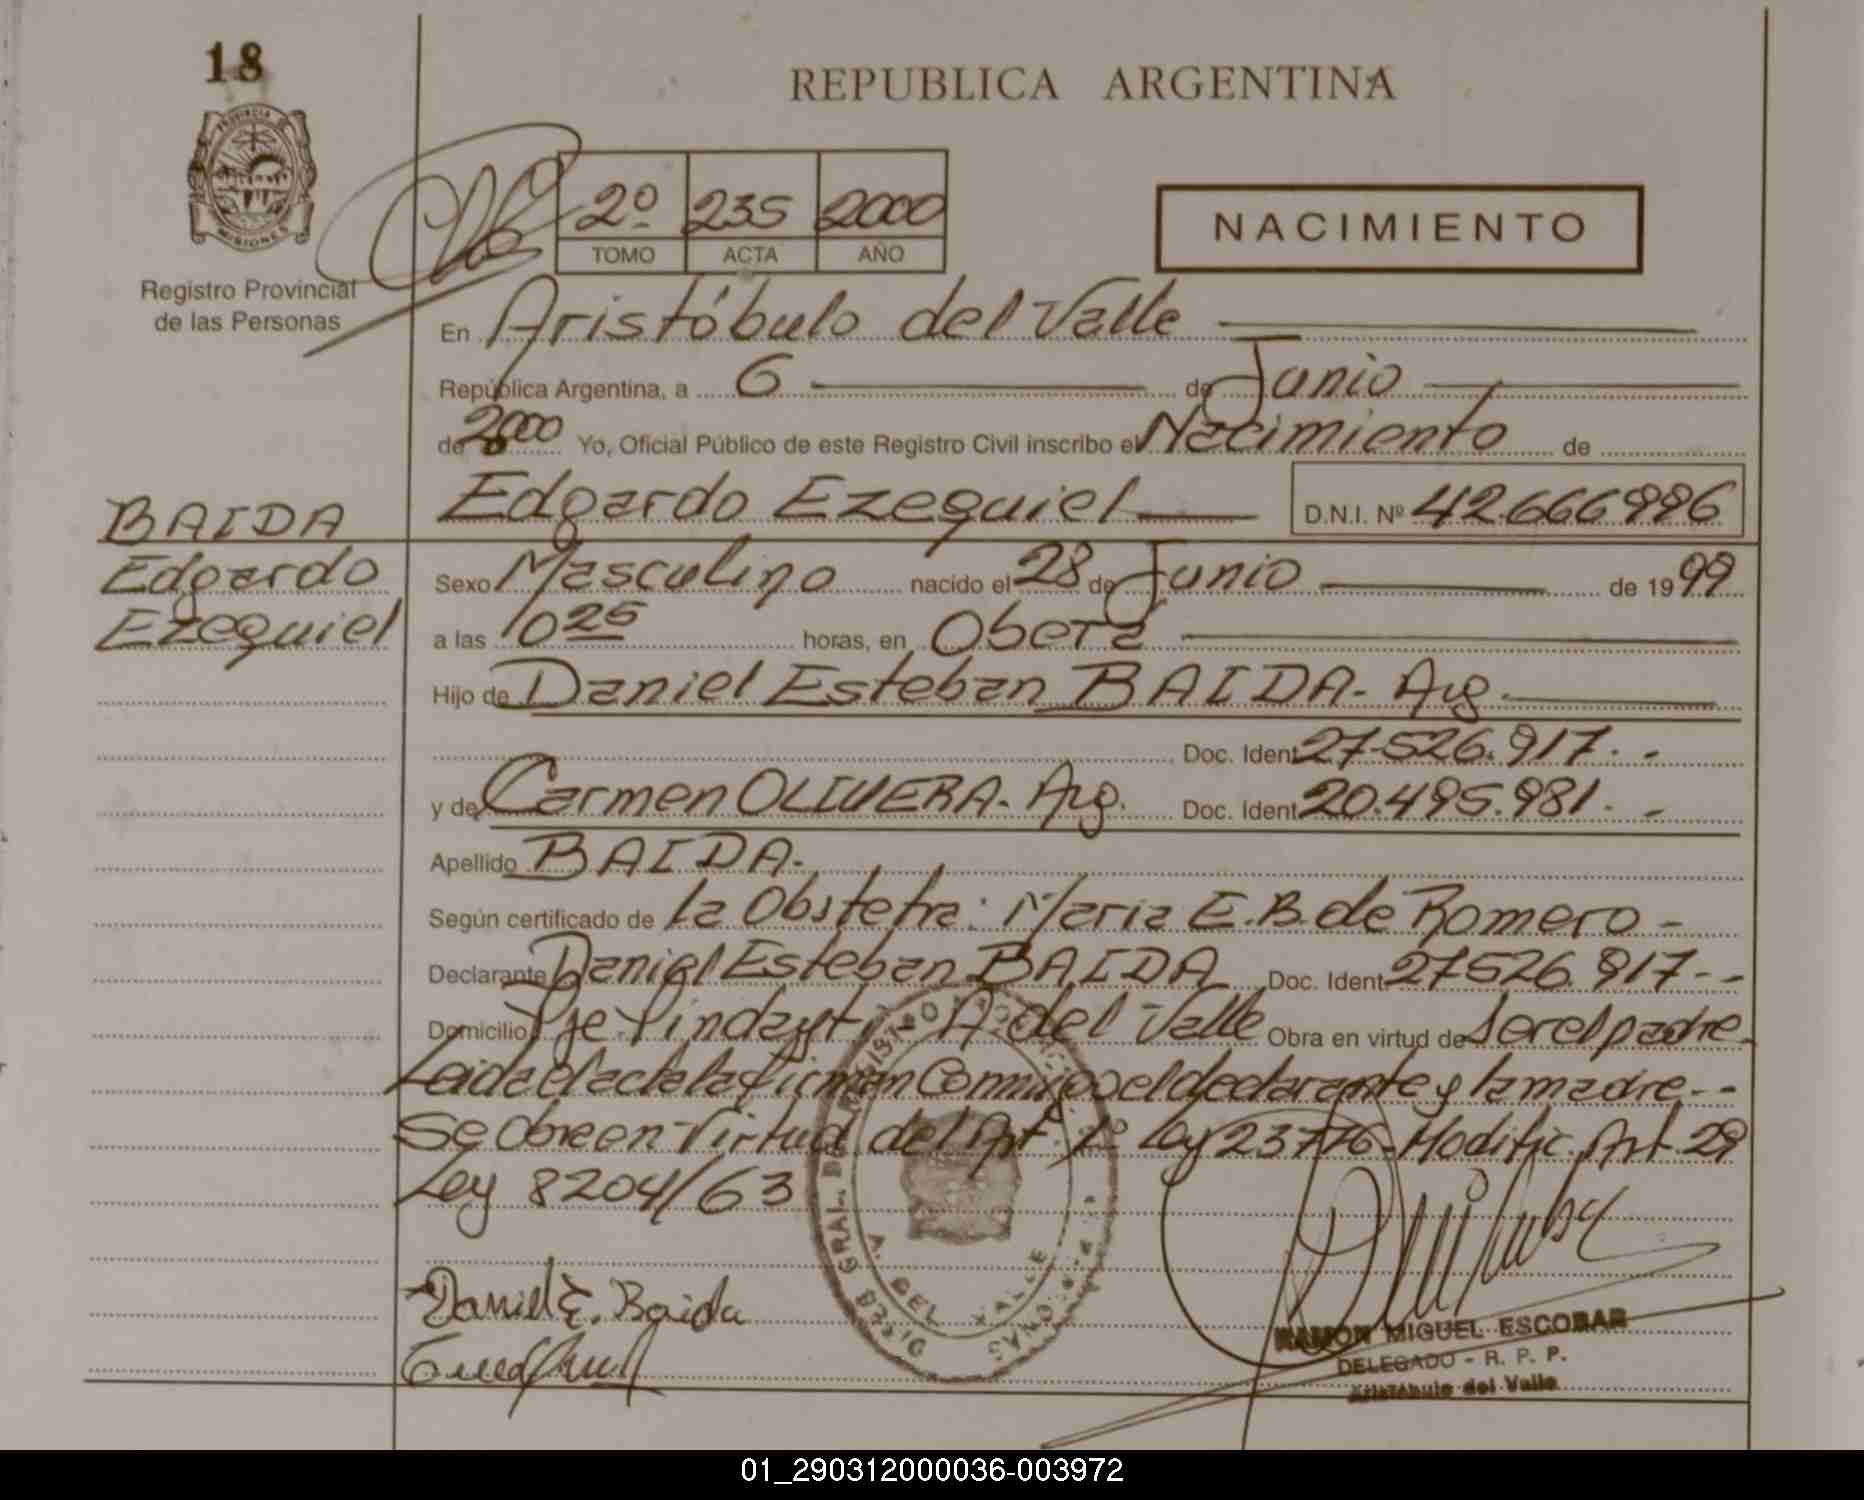 18
REPUBLICA ARGENTINA
PROVINCIA DE
MISIONES
Registro Provincial
de las Personas
2º 235 2000
TOMO ACTA AÑO
NACIMIENTO
En Aristóbulo del Valle
República Argentina, a 6 de Junio
de 2000 Yo, Oficial Público de este Registro Civil inscribo el Nacimiento de
Edgardo Ezequiel D.N.I. Nº 42.666.996
BAIDA
Edgardo
Ezequiel
Sexo Masculino nacido el 28 de Junio de 1999
a las 10 25 horas, en Oberá
Hijo de Daniel Esteban BAIDA - Arg.
Doc. Ident. 27.526.917. -
y de Carmen OLIVERA. Arg. Doc. Ident. 20.495.981. -
Apellido BAIDA.
Según certificado de la Obstetra: Maria E. B. de Romero -
Declarante Daniel Esteban BAIDA Doc. Ident. 27526.917 - -
Domicilio Pje. Pindayti - A del Valle Obra en virtud de ser el padre
Leida el acta la firman Conmigo el declarante y la madre - -
Se obre en Virtud del Art 1º Ley 23776 - Modific. Art. 29
Ley 8204/63
DIREC. GRAL. DEL REGISTRO
PERSONAS
A. DEL VALLE
Daniel E. Baida
RAMON MIGUEL ESCOBAR
DELEGADO - R. P. P.
Aristóbulo del Valle
01_290312000036-003972